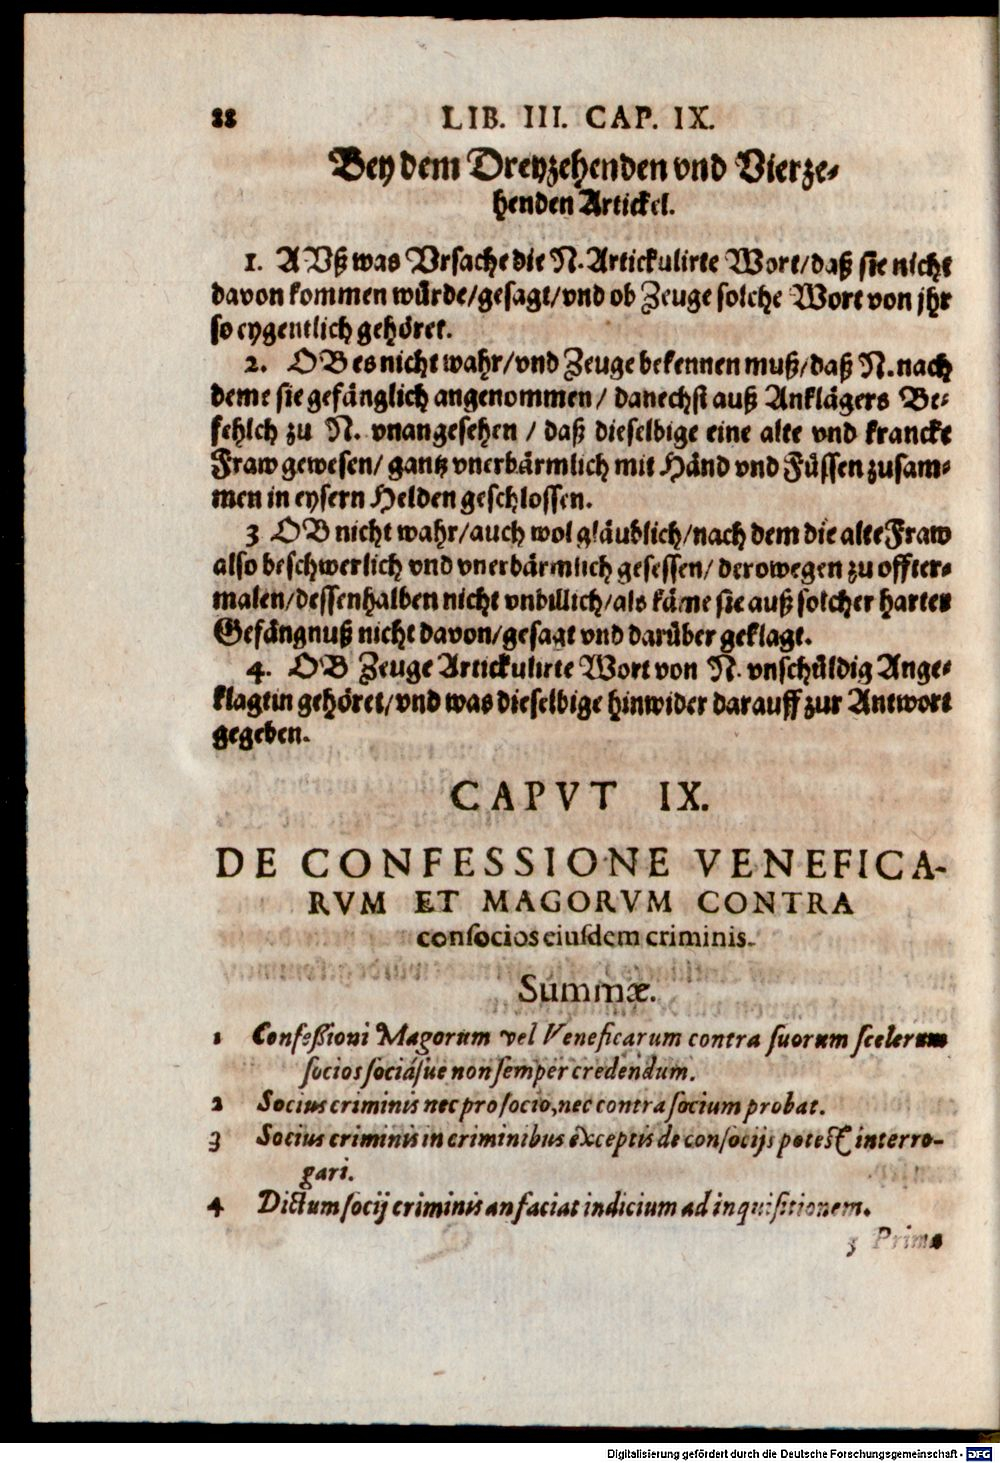 88 LIB. III. CAP. IX.
Bey dem Dreyzehenden vnd Vierze-
henden Artickel.
1. AVß was Vrsache die N. Artickulirte Wort/daß sie nicht
davon kommen würde/gesagt/vnd ob Zeuge solche Wort von jhr
so eygentlich gehöret.
2. OB es nicht wahr/vnd Zeuge bekennen muß/daß N. nach
deme sie gefänglich angenommen/ danechst auß Anklägers Be-
fehlch zu N. vnangesehen / daß dieselbige eine alte vnd krancke
Fraw gewesen/ gantz vnerbärmlich mit Händ vnd Füssen zusam-
men in eysern Helden geschlossen.
3 OB nicht wahr/auch wol gläublich/nach dem die alte Fraw
also beschwerlich vnd vnerbärmlich gesessen/ derowegen zu offter-
malen/dessenhalben nicht vnbillich/als käme sie auß solcher harten
Gefängnuß nicht davon/gesagt vnd darüber geklagt.
4. OB Zeuge Artickulirte Wort von N. vnschüldig Ange-
klagtin gehöret/vnd was dieselbige hinwider darauff zur Antwort
gegeben.
CAPVT IX.
DE CONFESSIONE VENEFICA-
RVM ET MAGORVM CONTRA
consocios eiusdem criminis.
Summæ.
1 Confeßioni Magorum vel Veneficarum contra suorum scelerum
socios sociásue non semper credendum.
2 Socius criminis nec pro socio, nec contra socium probat.
3 Socius criminis in criminibus exceptis de consocijs potest interro-
gari.
4 Dictum socij criminis an faciat indicium ad inquisitionem.
3 Prima
Digitalisierung gefördert durch die Deutsche Forschungsgemeinschaft - DFG